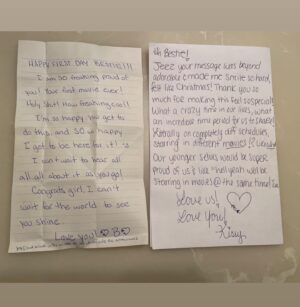 HAPPY FIRST DAY BESTIE!!!
I am so freaking proud of
you! Your first movie ever!
Holy Shit! How freaking cool!
I'm so happy you get to
do this, and SO happy
I get to be here for it! :)
I can't wait to hear all
all about it as you go!
Congrats girl, I can't
wait for the world to see
you shine.
Love you! ♡B♡
Oh Bestie!
Jeez your message was beyond
adorable & made me smile so hard,
felt like Christmas! Thank you so
much for making this feel so special!
What a crazy time in our lives, what
an incredible time period for us to share!
Literally on completely diff schedules,
starring in different movies!?
Our younger selves would be super
proud of us & like "hell yeah we'll be
starring in movies @ the same time!"
Love us!
Love You!
- Kissy